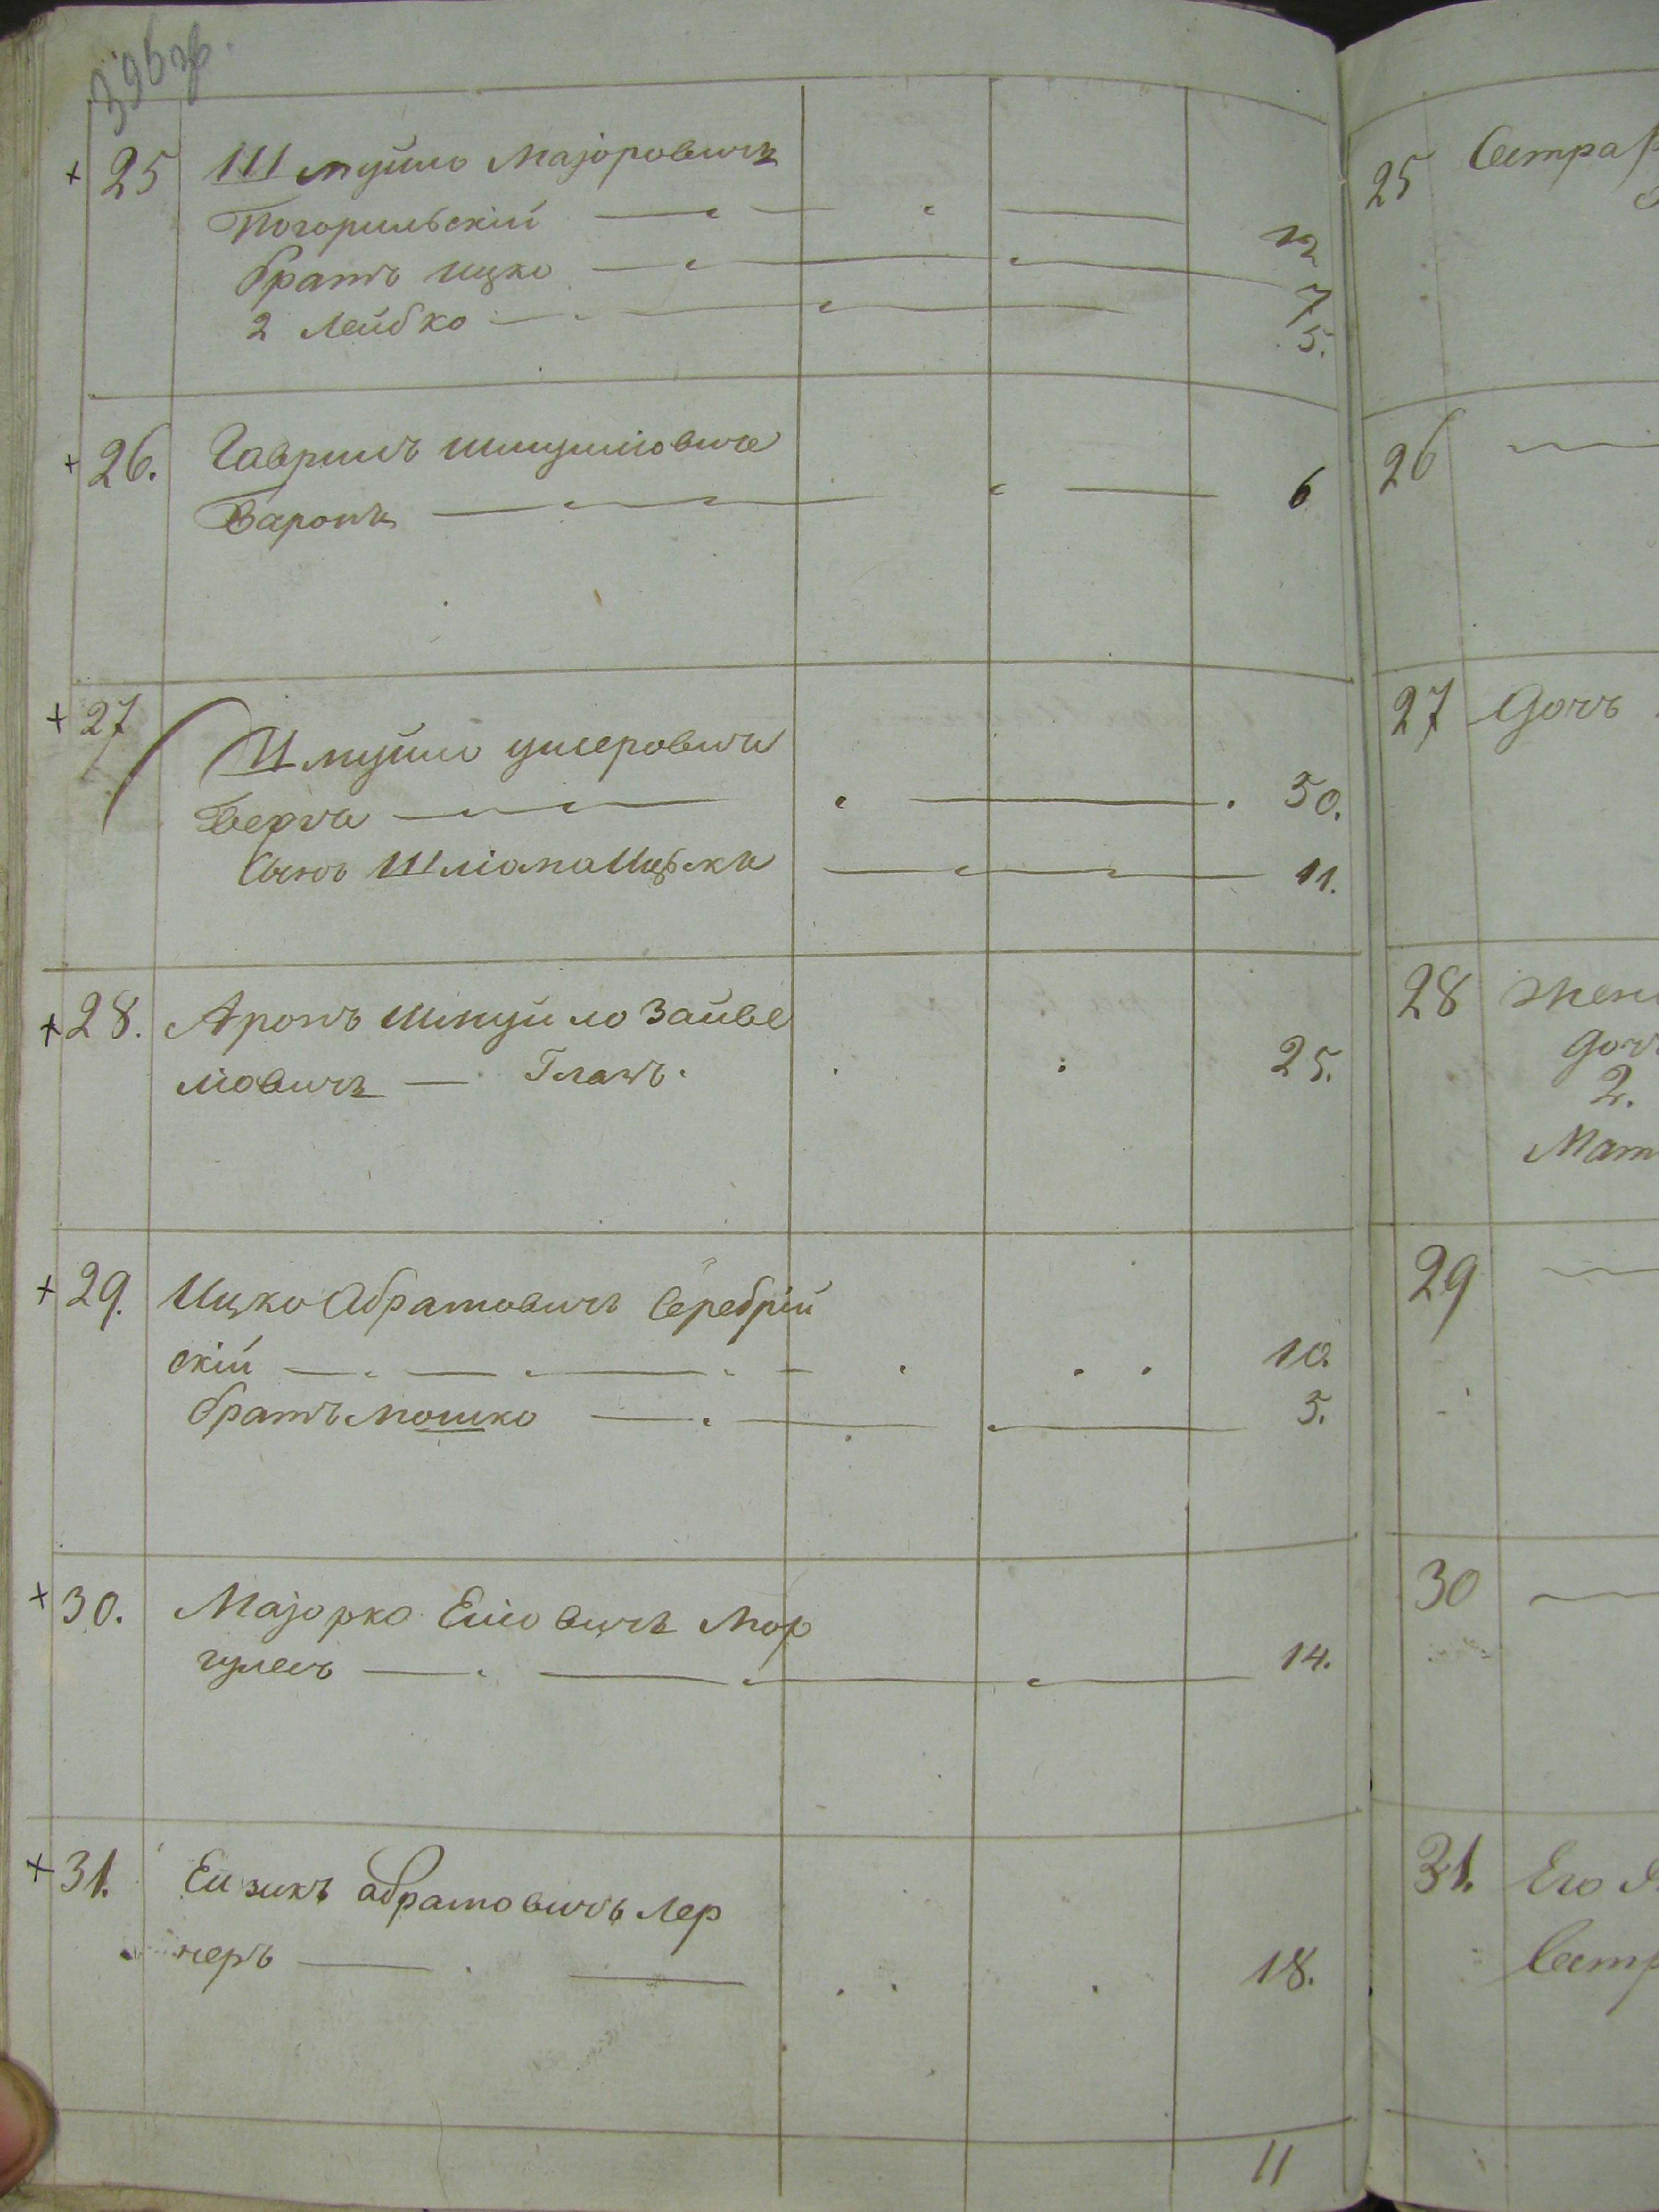 396 об.
+ 25 Шмуйло Маjоровичъ
Погорильскій 12
братъ Ицко 7
2 Лейбко 5.
+ 26. Гаврилъ Шмуйловичъ
Баронъ 6
+ 27 Шмуйло Ушеровичъ
Берхъ 50.
Сынъ Шліома Ицькъ 11.
+ 28. Аронъ Шмуйло Зайве
ліовичъ — Глазъ. 25.
+ 29. Ицко Абрамовичъ Серебрій
скій 10.
братъ Мошко 5.
+ 30. Маjорко Еліовичъ Мор
гулесъ 14.
+ 31. Ейзикъ Абрамовичъ Лер
неръ 18.
11
25 Сестра
26
27 дочь
28 жена
дочь
2.
Мать
29
30
31. Его
Сестр